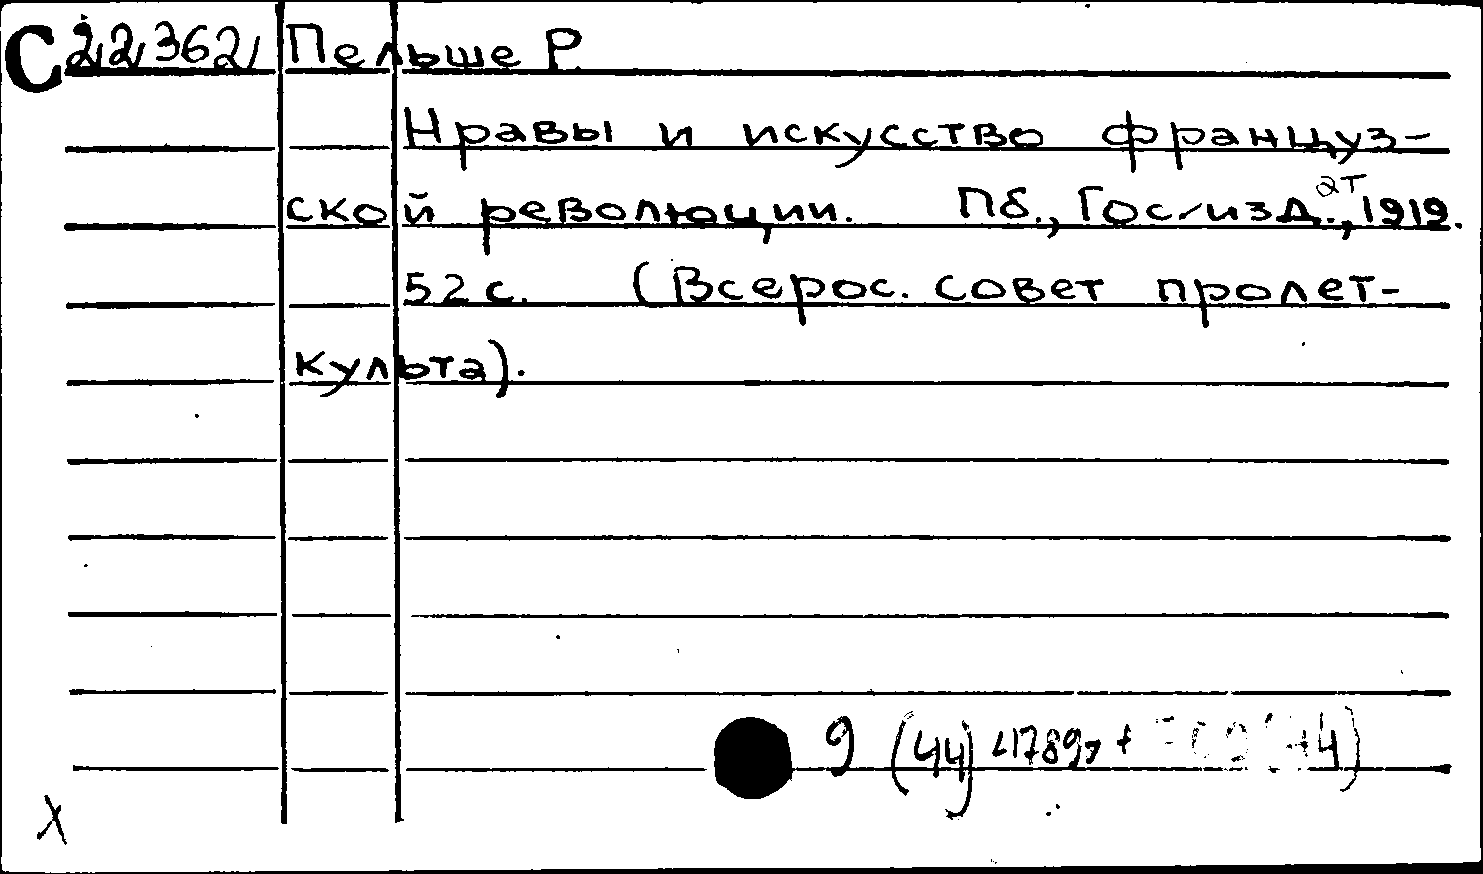 С 22362 Пельше Р.
Нравы и искусство француз-
ской революции. Пб., Гос. изд., 1919.
52 с. (Всерос. совет пролет-
культа).
9 (44) «1789» +
X